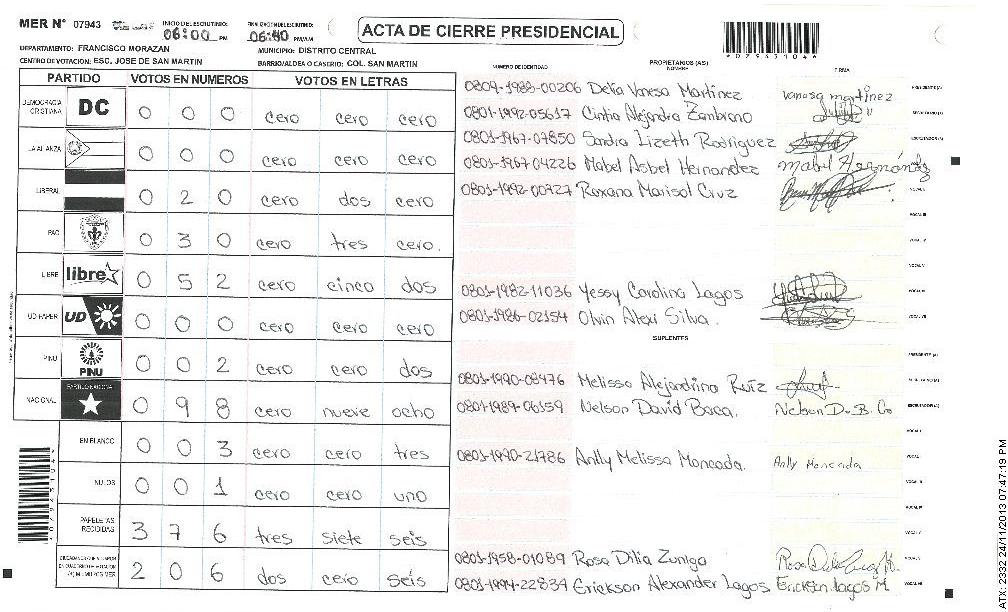 MER N° 07943
INICIO DEL ESCRUTINIO:
06:00 PM
FINALIZACION DEL ESCRUTINIO:
06:40 PM/AM
ACTA DE CIERRE PRESIDENCIAL
*07943104*
DEPARTAMENTO: FRANCISCO MORAZAN
MUNICIPIO: DISTRITO CENTRAL
CENTRO DE VOTACION: ESC. JOSE DE SAN MARTIN
BARRIO/ALDEA O CASERIO: COL. SAN MARTIN
PARTIDO VOTOS EN NUMEROS VOTOS EN LETRAS
DEMOCRACIA CRISTIANA DC 0 0 0 cero cero cero
LA ALIANZA 0 0 0 cero cero cero
LIBERAL 0 2 0 cero dos cero
PAC 0 3 0 cero tres cero.
LIBRE libre 0 5 2 cero cinco dos
UD-FAPER UD 0 0 0 cero cero cero
PINU PINU 0 0 2 cero cero dos
NACIONAL PARTIDO NACIONAL 0 9 8 cero nueve ocho
EN BLANCO 0 0 3 cero cero tres
NULOS 0 0 1 cero cero uno
PAPELETAS RECIBIDAS 3 7 6 tres siete seis
2 0 6 dos cero seis
NUMERO DE IDENTIDAD
PROPIETARIOS (AS)
NOMBRE
FIRMA
0809-1988-00206 Delia Vanesa Martínez vanesa martinez PRESIDENTE (A)
0801-1992-05617 Cintia Alejandra Zambrano SECRETARIO (A)
0801-1967-07850 Sandra Lizeth Rodriguez ESCRUTADOR (A)
0801-1967-04226 Mabel Asbel Hernandez mabil Hernández
0801-1992-00327 Roxana Marisol Cruz
VOCAL III
0801-1982-11036 Yessy Carolina Lagos
0801-1986-02154 Olvin Alexi Silva.
SUPLENTES
PRESIDENTE (A)
0801-1990-08476 Melissa Alejandrina Ruíz
0801-1989-06159 Nelson David Baca. Nelson D. B. ESCRUTADOR (A)
0801-1990-21786 Anlly Melissa Moncada. Anlly Moncada
0801-1958-01089 Rosa Dilia Zuniga
0801-1994-22834 Erickson Alexander Lagos Erickson Lagos M.
*07943104*
ATX-2332 24/11/2013 07:47:19 PM